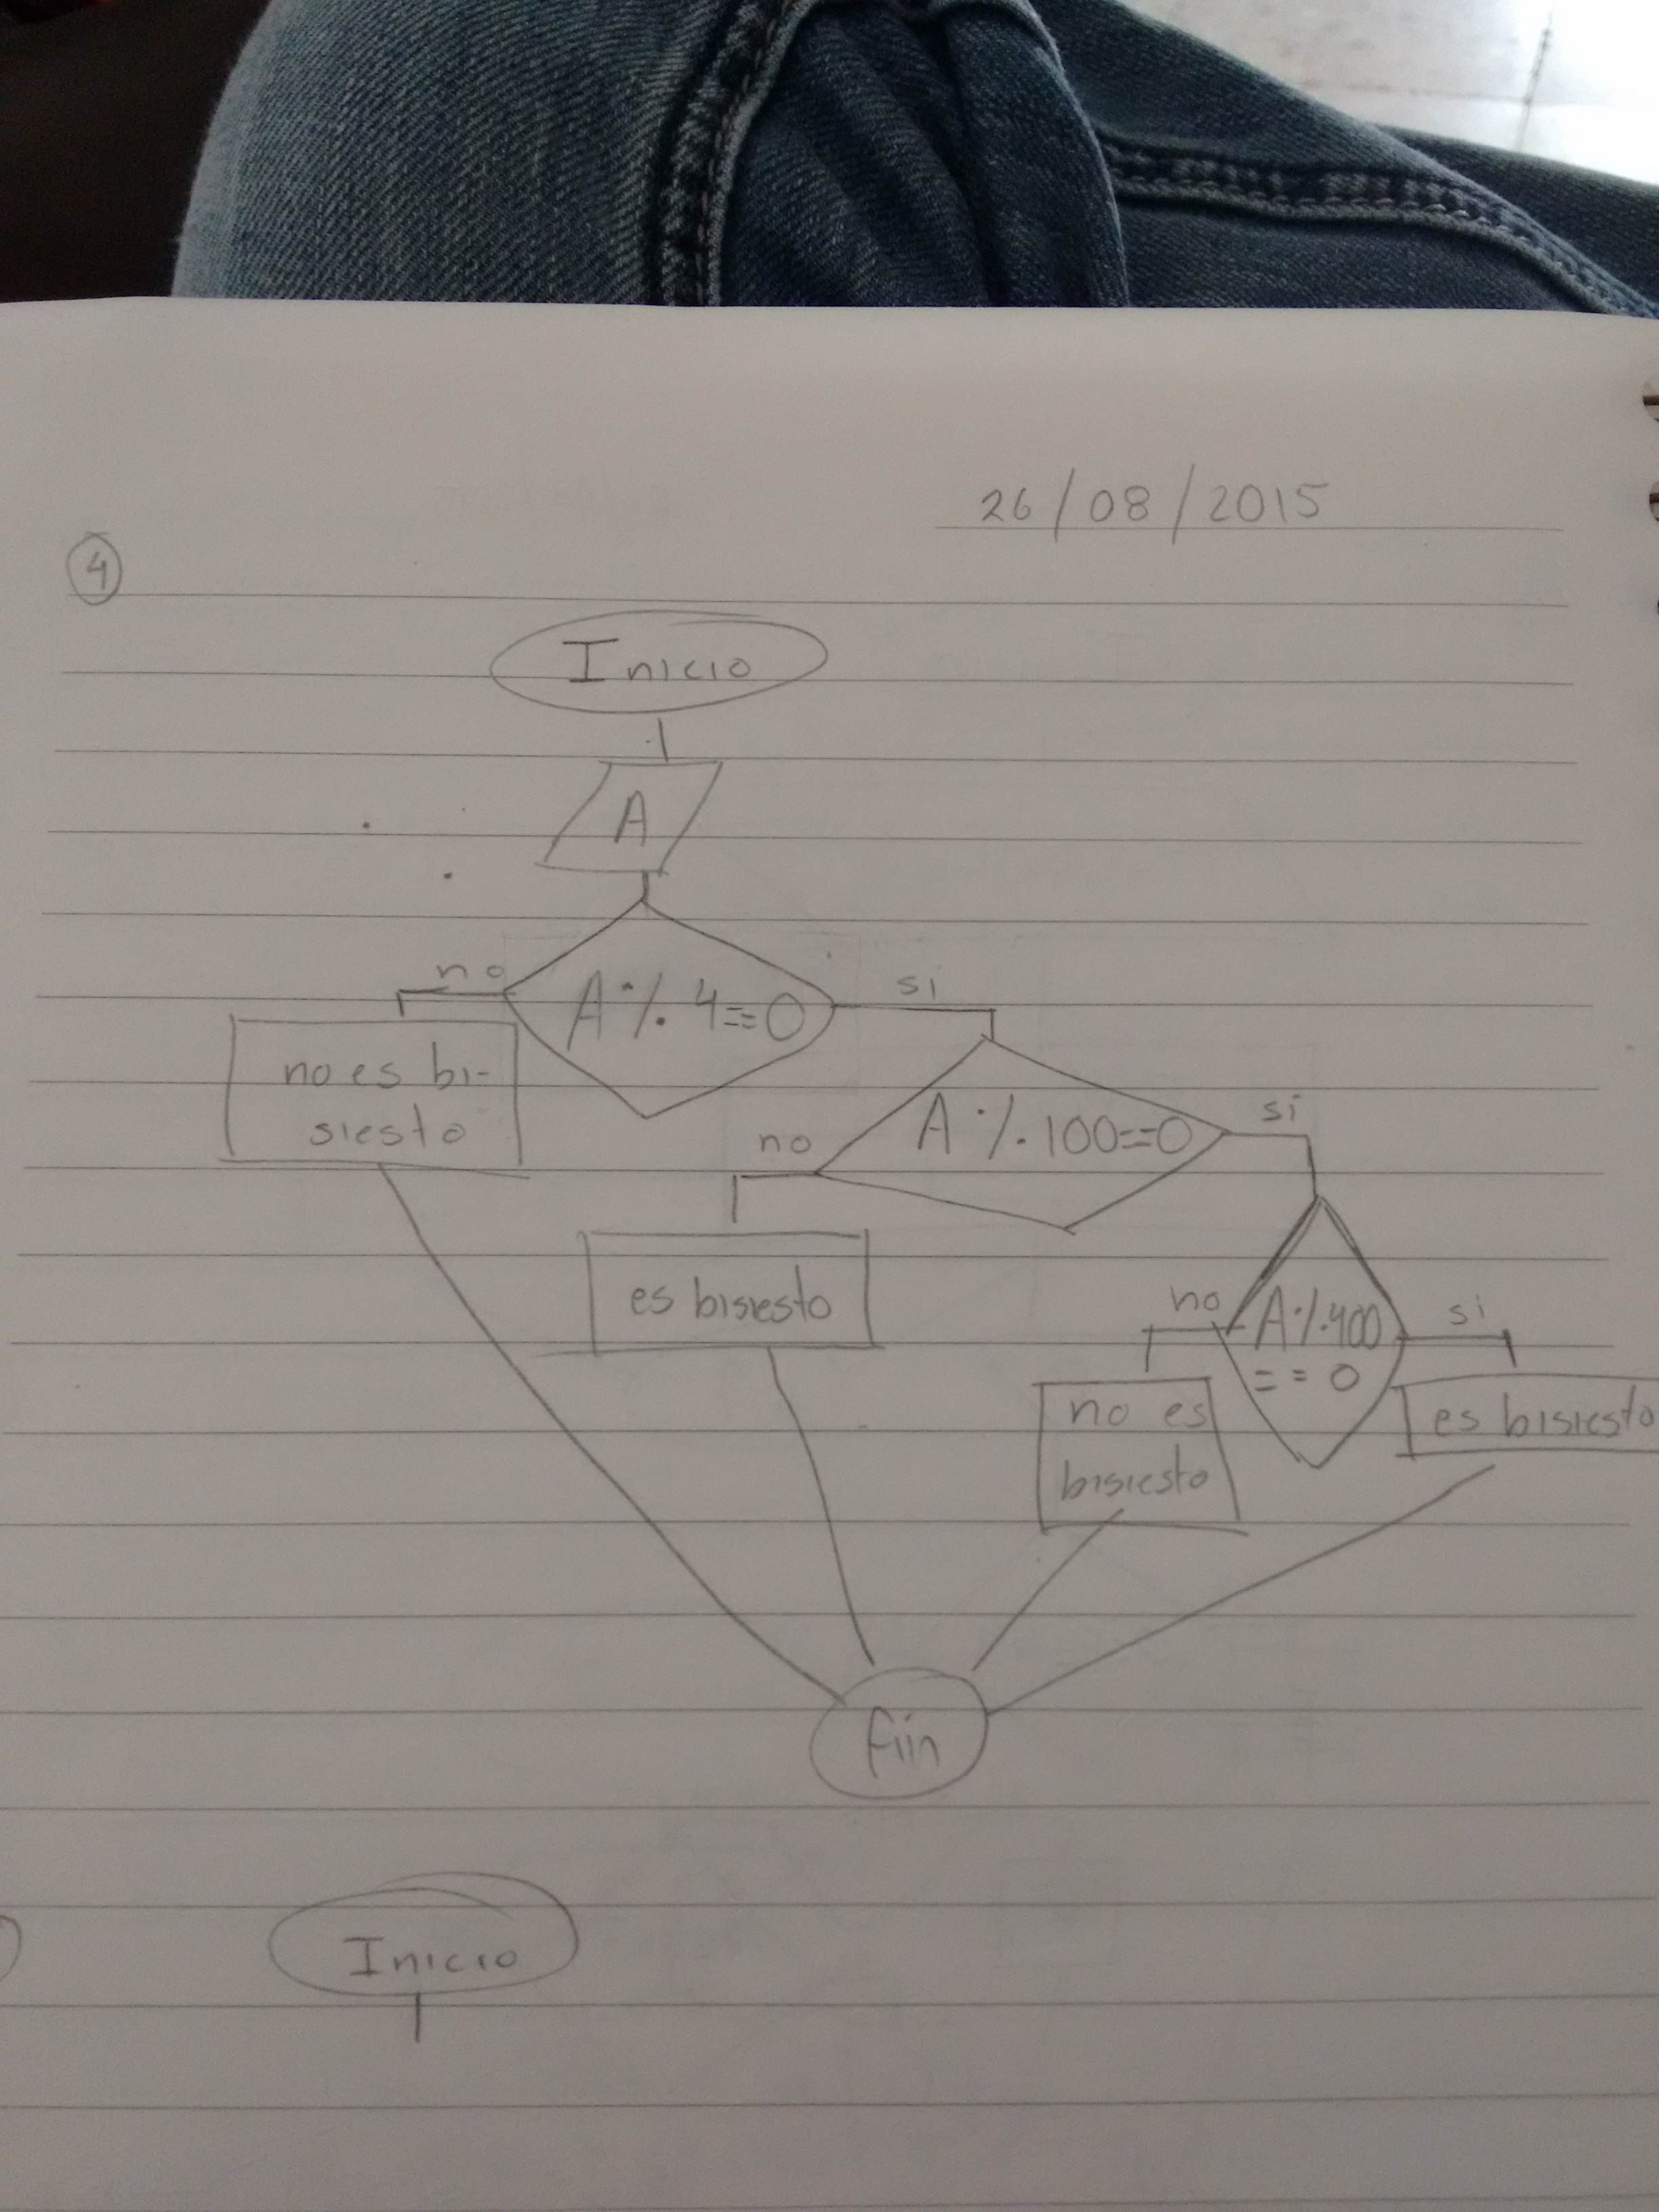 26/08/2015
4
Inicio
A
no
A % 4==0
si
no es bi-
siesto
no
A % 100==0
si
es bisiesto
no
A%400
== 0
si
no es
bisiesto
es bisiesto
fin
Inicio